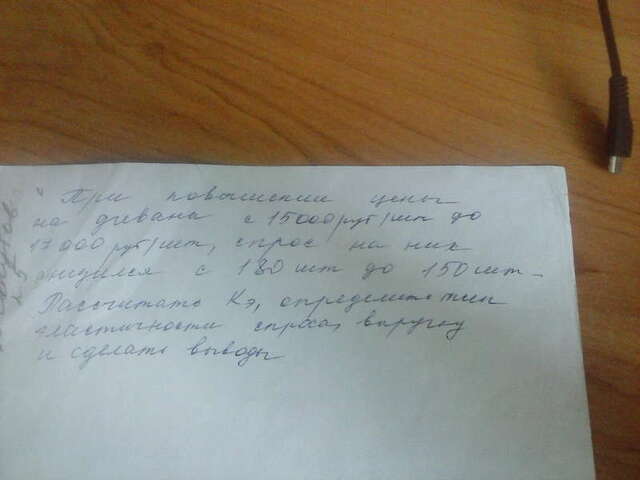 " При повышении цены
на дивана с 15000 руб/шт до
17000 руб/шт, спрос на них
снизился с 180 шт до 150 шт.
Рассчитать Кэ, определить тип
эластичности спроса, выручку
и сделать выводы